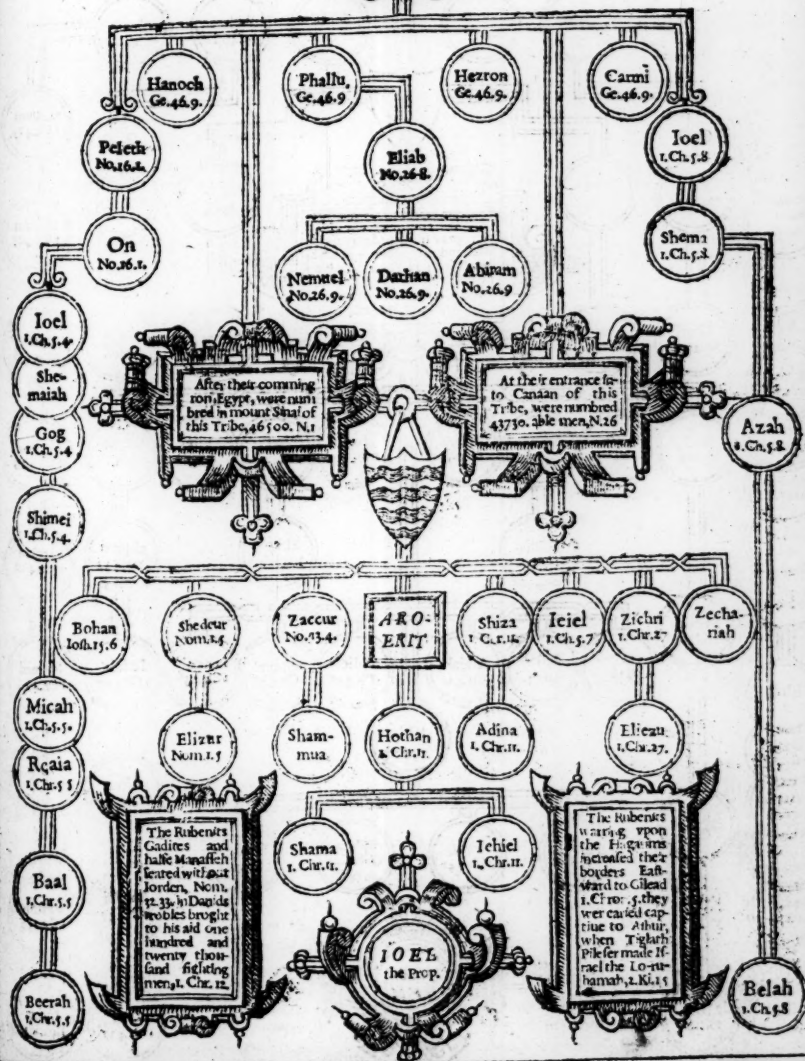 Hanoch
Ge.46.9.
Phallu,
Ge.46.9
Hezron
Ge.46.9.
Carmi
Ge.46.9.
Peleth
No.16.1.
Eliab
No.26.8.
Ioel
1.Ch.5.8
On
No.16.1.
Shema
1.Ch.5.8.
Nemuel
No.26.9.
Dathan
No.26.9.
Abiram
No.26.9
Ioel
1.Ch.5.4.
She-
maiah
Gog
1.Ch.5.4
Shimei
1.Ch.5.4.
After their comming
from Egypt, were num
bred in mount Sinai of
this Tribe, 46500. N.1
At their entrance in-
to Canaan of this
Tribe, were numbred
43730. able men, N.26
Azah
1.Ch.5.8.
Bohan
Iosh.15.6
Shedeur
Nom.1.5
Zaccur
No.13.4.
ARO-
ERIT
Shiza
1 Chr.11.
Ieiel
1.Ch.5.7
Zichri
1.Chr.27
Zecha-
riah
Micah
1.Ch.5.5.
Reaia
1.Chr.5 5
Elizur
Nom.1.5
Sham-
mua
Hothan
1. Chr.11.
Adina
1. Chr.11.
Eliezu
1.Chr.27.
Shama
1.Chr.11.
Iehiel
1.Chr.11.
Baal
1.Ch.5.5
Beerah
1.Chr.5.5
The Rubenits
Gadites and
halfe Manasseh
seated without
Iorden, Nom.
32.33. in Dauids
trobles broght
to his aid one
hundred and
twenty thou-
sand fighting
men, 1. Chr. 12.
IOEL
the Prop.
The Rubenits
warring vpon
the Hagarims
increased their
borders East-
ward to Gilead
1.Chron.5. they
wer caried cap-
tiue to Ashur,
when Tiglath
Pileser made Is-
rael the Lo-ru-
hamah, 2. Ki.15
Belah
1.Ch.5.8